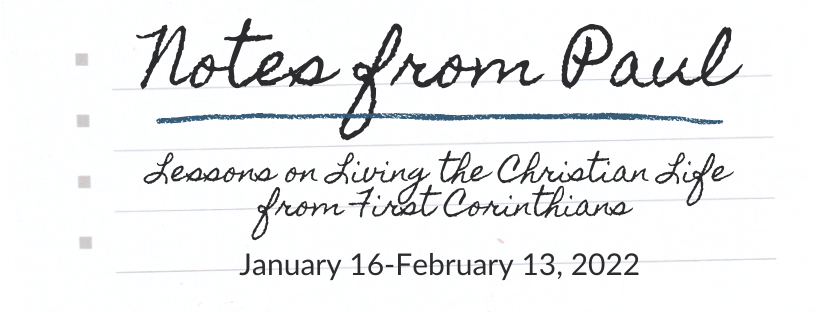 Notes from Paul
Lessons on Living the Christian Life
from First Corinthians
January 16-February 13, 2022